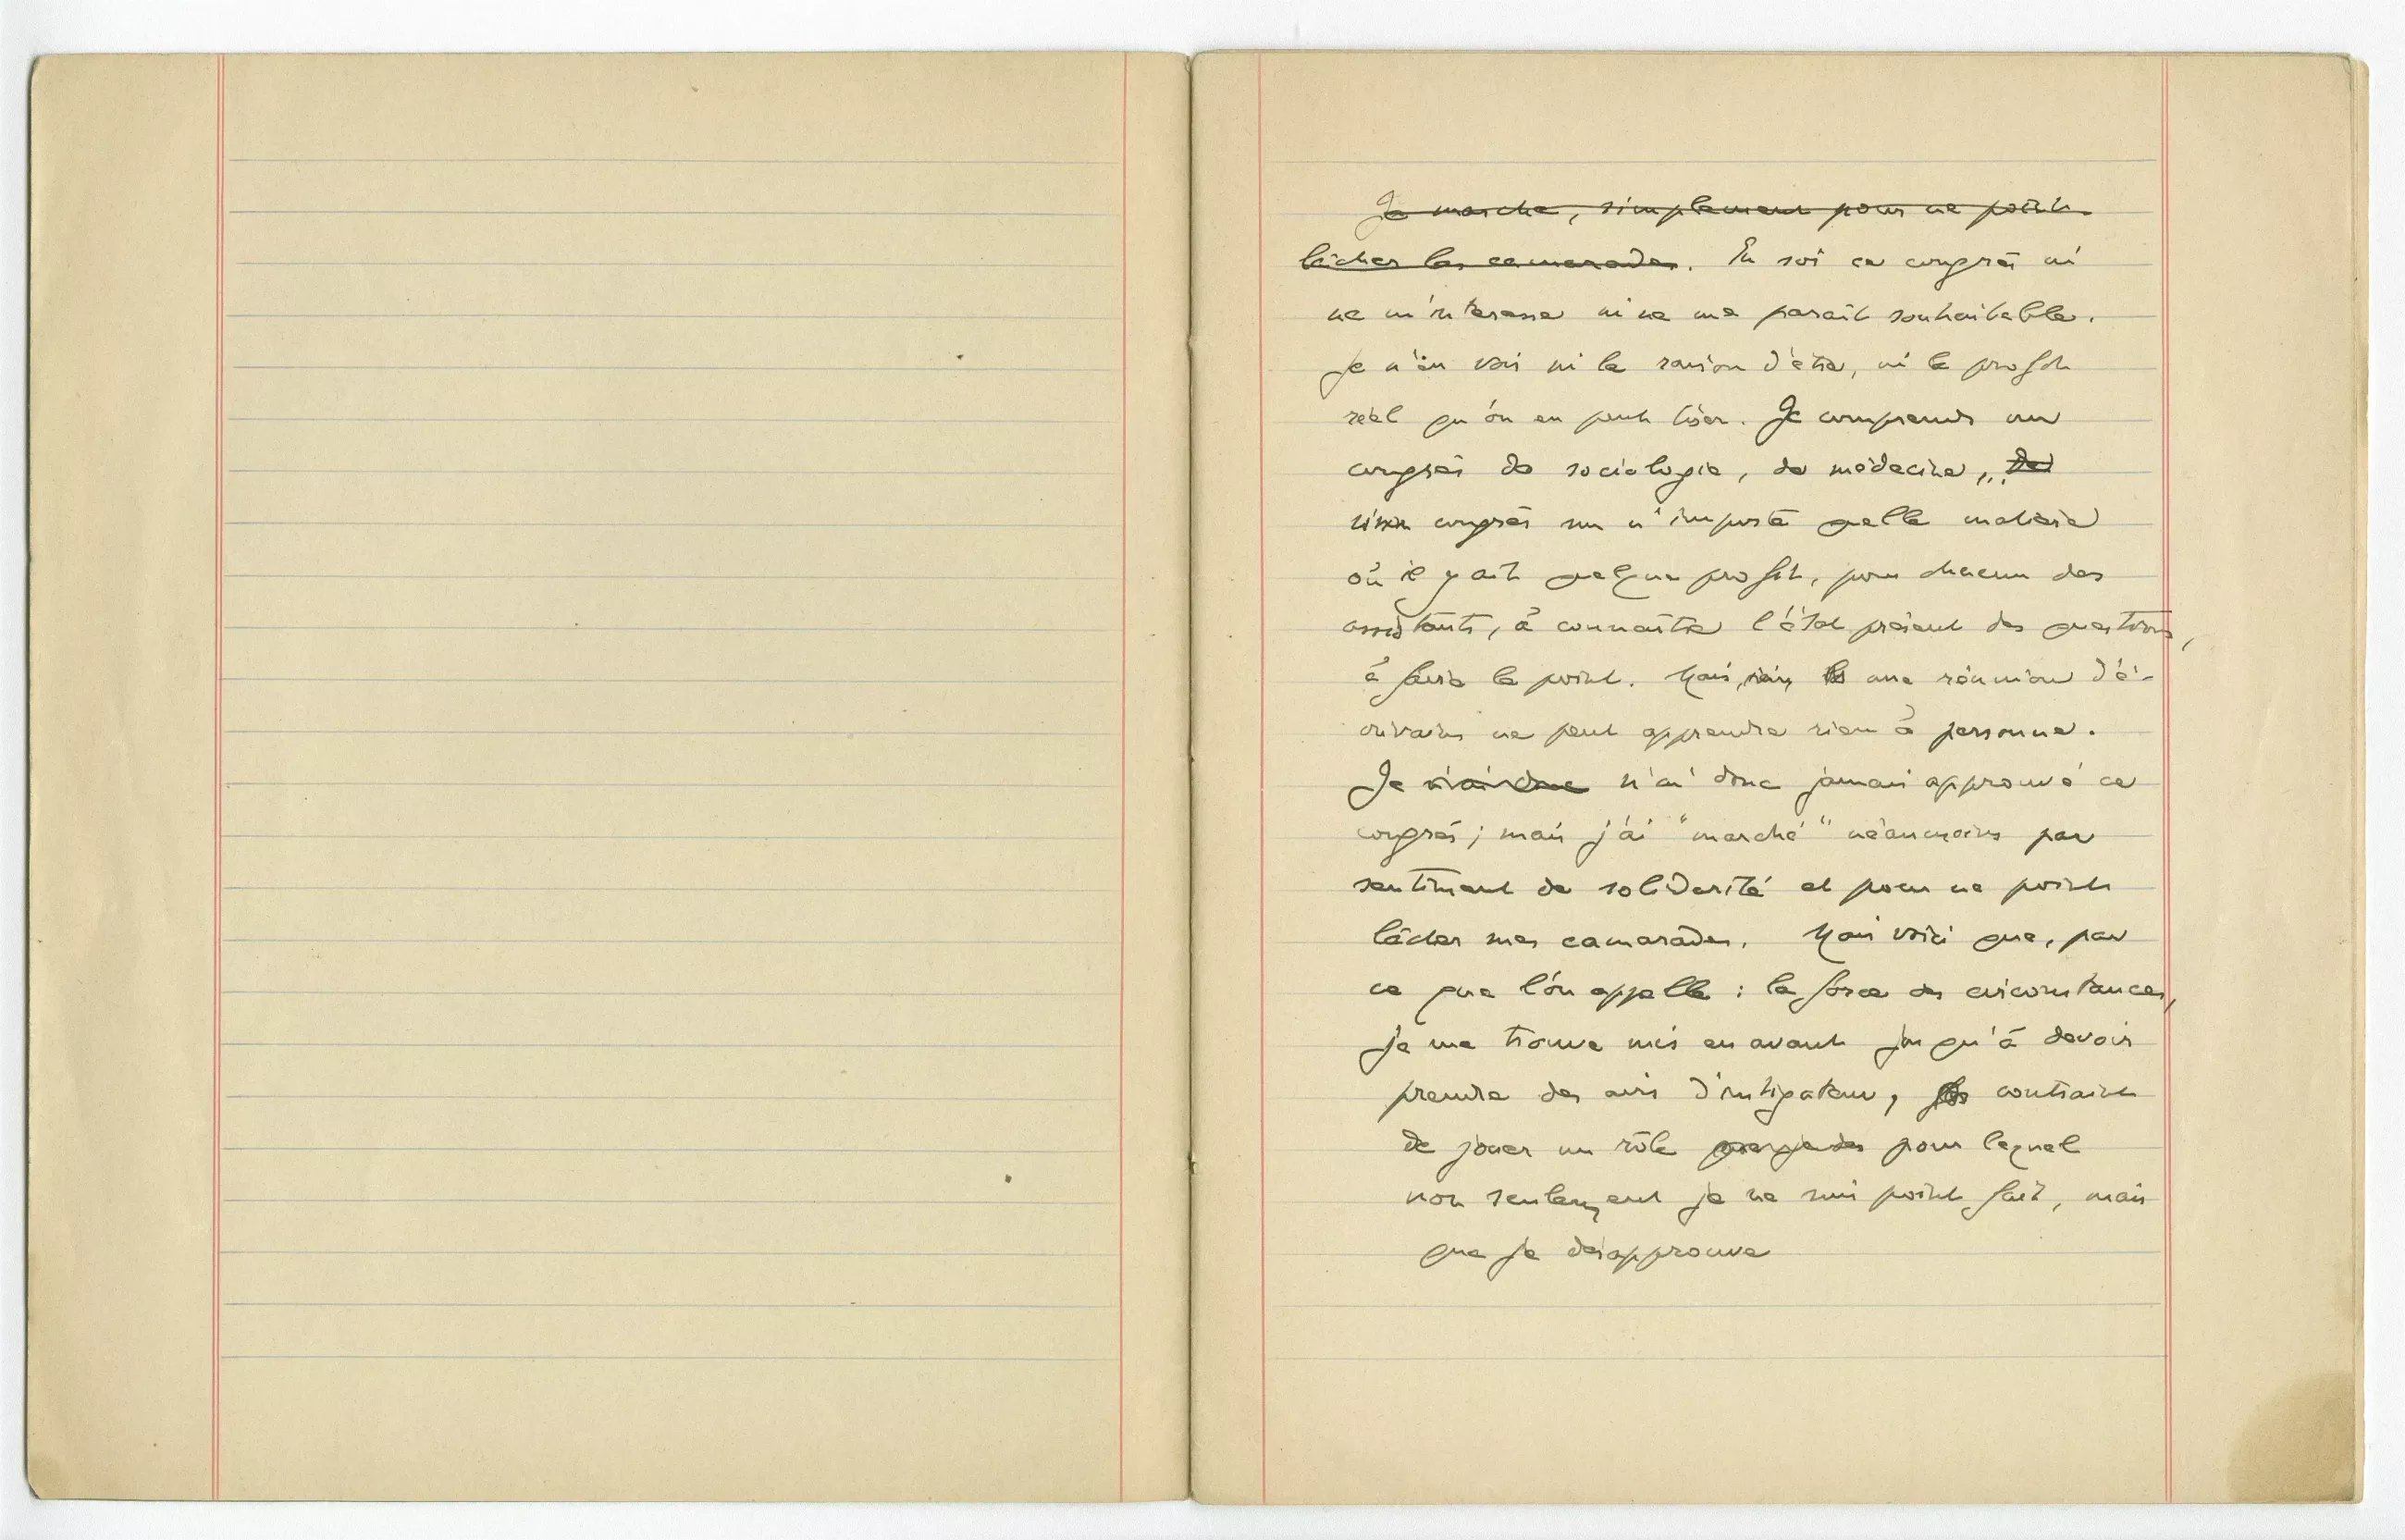 Je marche, simplement pour ne point
lâcher les camarades. En soi ce congrès ni
ne m'intéresse ni ne me paraît souhaitable.
Je n'en vois ni la raison d'être, ni le profit
réel qu'on en peut tirer. Je comprends un
congrès de sociologie, de médecine, de
congrès sur n'importe quelle matière
où il y ait quelque profit, pour chacun des
assistants, à connaître l'état présent des questions,
à faire le point. Mais, une réunion d'é-
crivains ne peut apprendre rien à personne.
Je n'ai donc n'ai donc jamais approuvé ce
congrès ; mais j'ai "marché" néanmoins par
sentiment de solidarité et pour ne point
lâcher mes camarades. Mais voici que, par
ce que l'on appelle : la force des circonstances,
je me trouve mis en avant jusqu'à devoir
prendre des airs d'instigateur, contraint
de jouer un rôle pour lequel
non seulement je ne suis point fait, mais
que je désapprouve